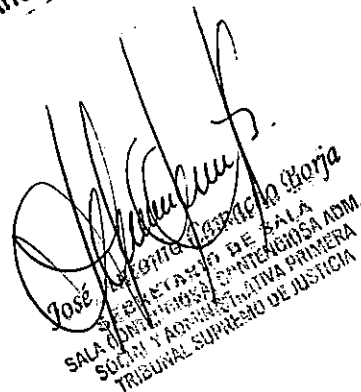 José Borja
SECRETARIO DE SALA
SALA CONTENCIOSA, CONTENCIOSA ADM.
SOCIAL Y ADMINISTRATIVA PRIMERA
TRIBUNAL SUPREMO DE JUSTICIA